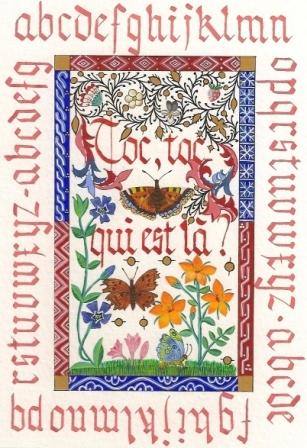 abcdefghijklmn
opqrstuvwxyz·abcde
fghijklmnopq
rstuvwxyz-abcdefg
Toc, toc
qui est là ?